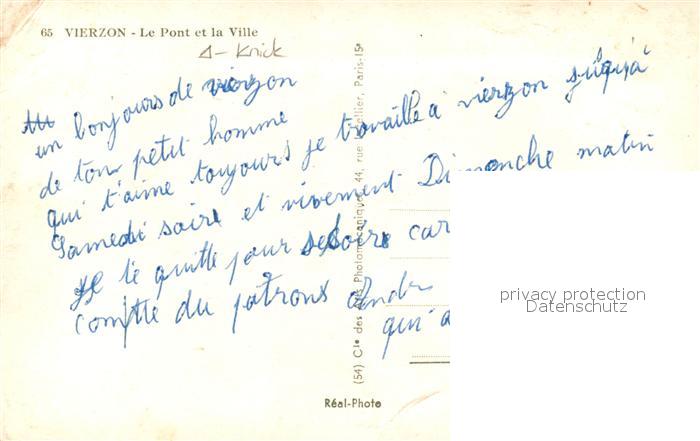 65 VIERZON - Le Pont et la Ville
un bonjours de vierzon
de ton petit homme
qui t'aime toujours je travaille a vierzon
Samedi soire et vivement Dimanche matin
Je te quitte pour se soire car
compte du patrons
qui a
(54) Cie des Arts Photomécaniques, 44, rue Letellier, Paris-15e
Réal-Photo
privacy protection
Datenschutz